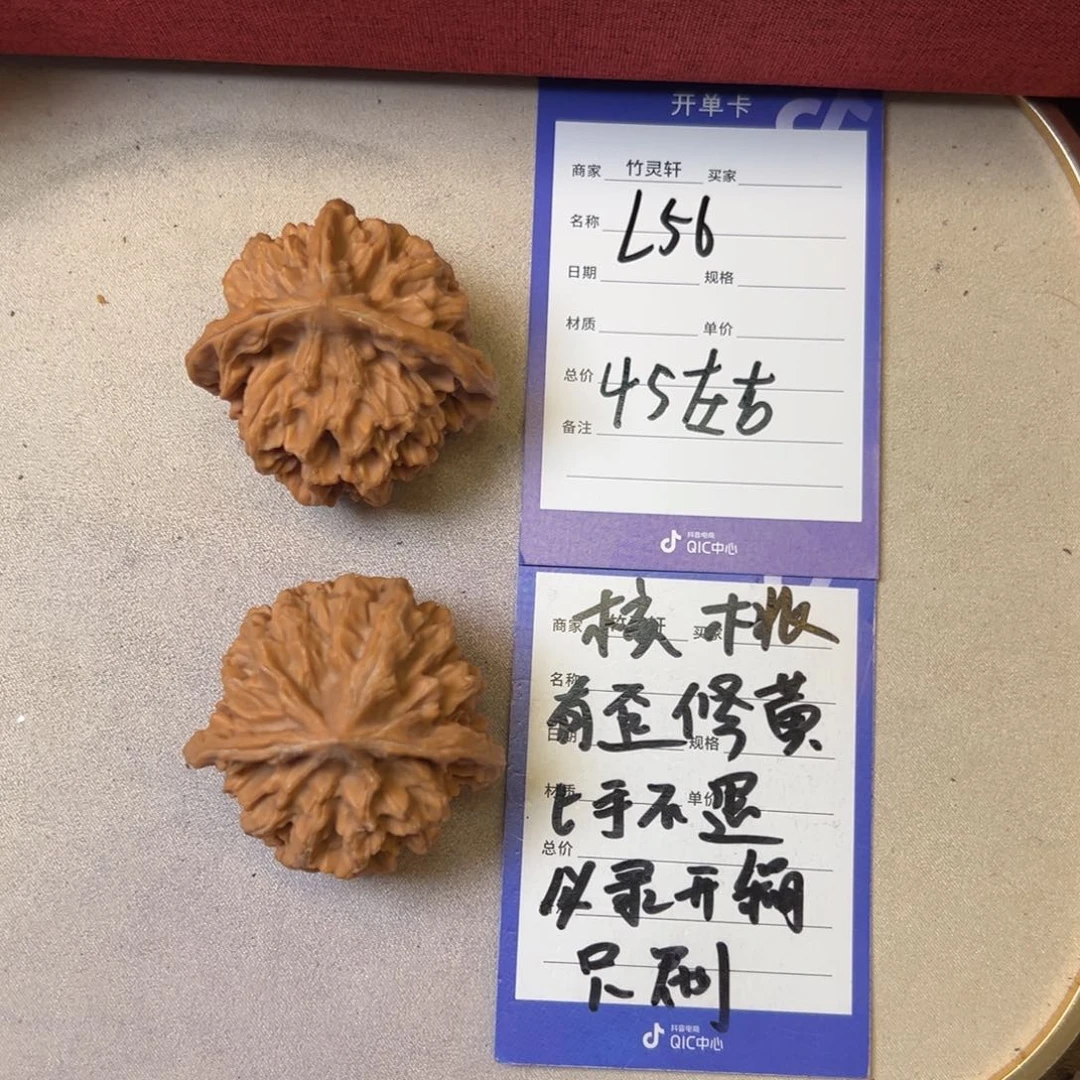 开单卡
商家 竹灵轩 买家
名称 L56
日期 规格
材质 单价
总价 45左右
备注
抖音电商
QIC中心
商家 核桃 买家
名称
有歪修黄
日期 规格
材质 单价
上手不退
总价
必录开箱
只刷
抖音电商
QIC中心